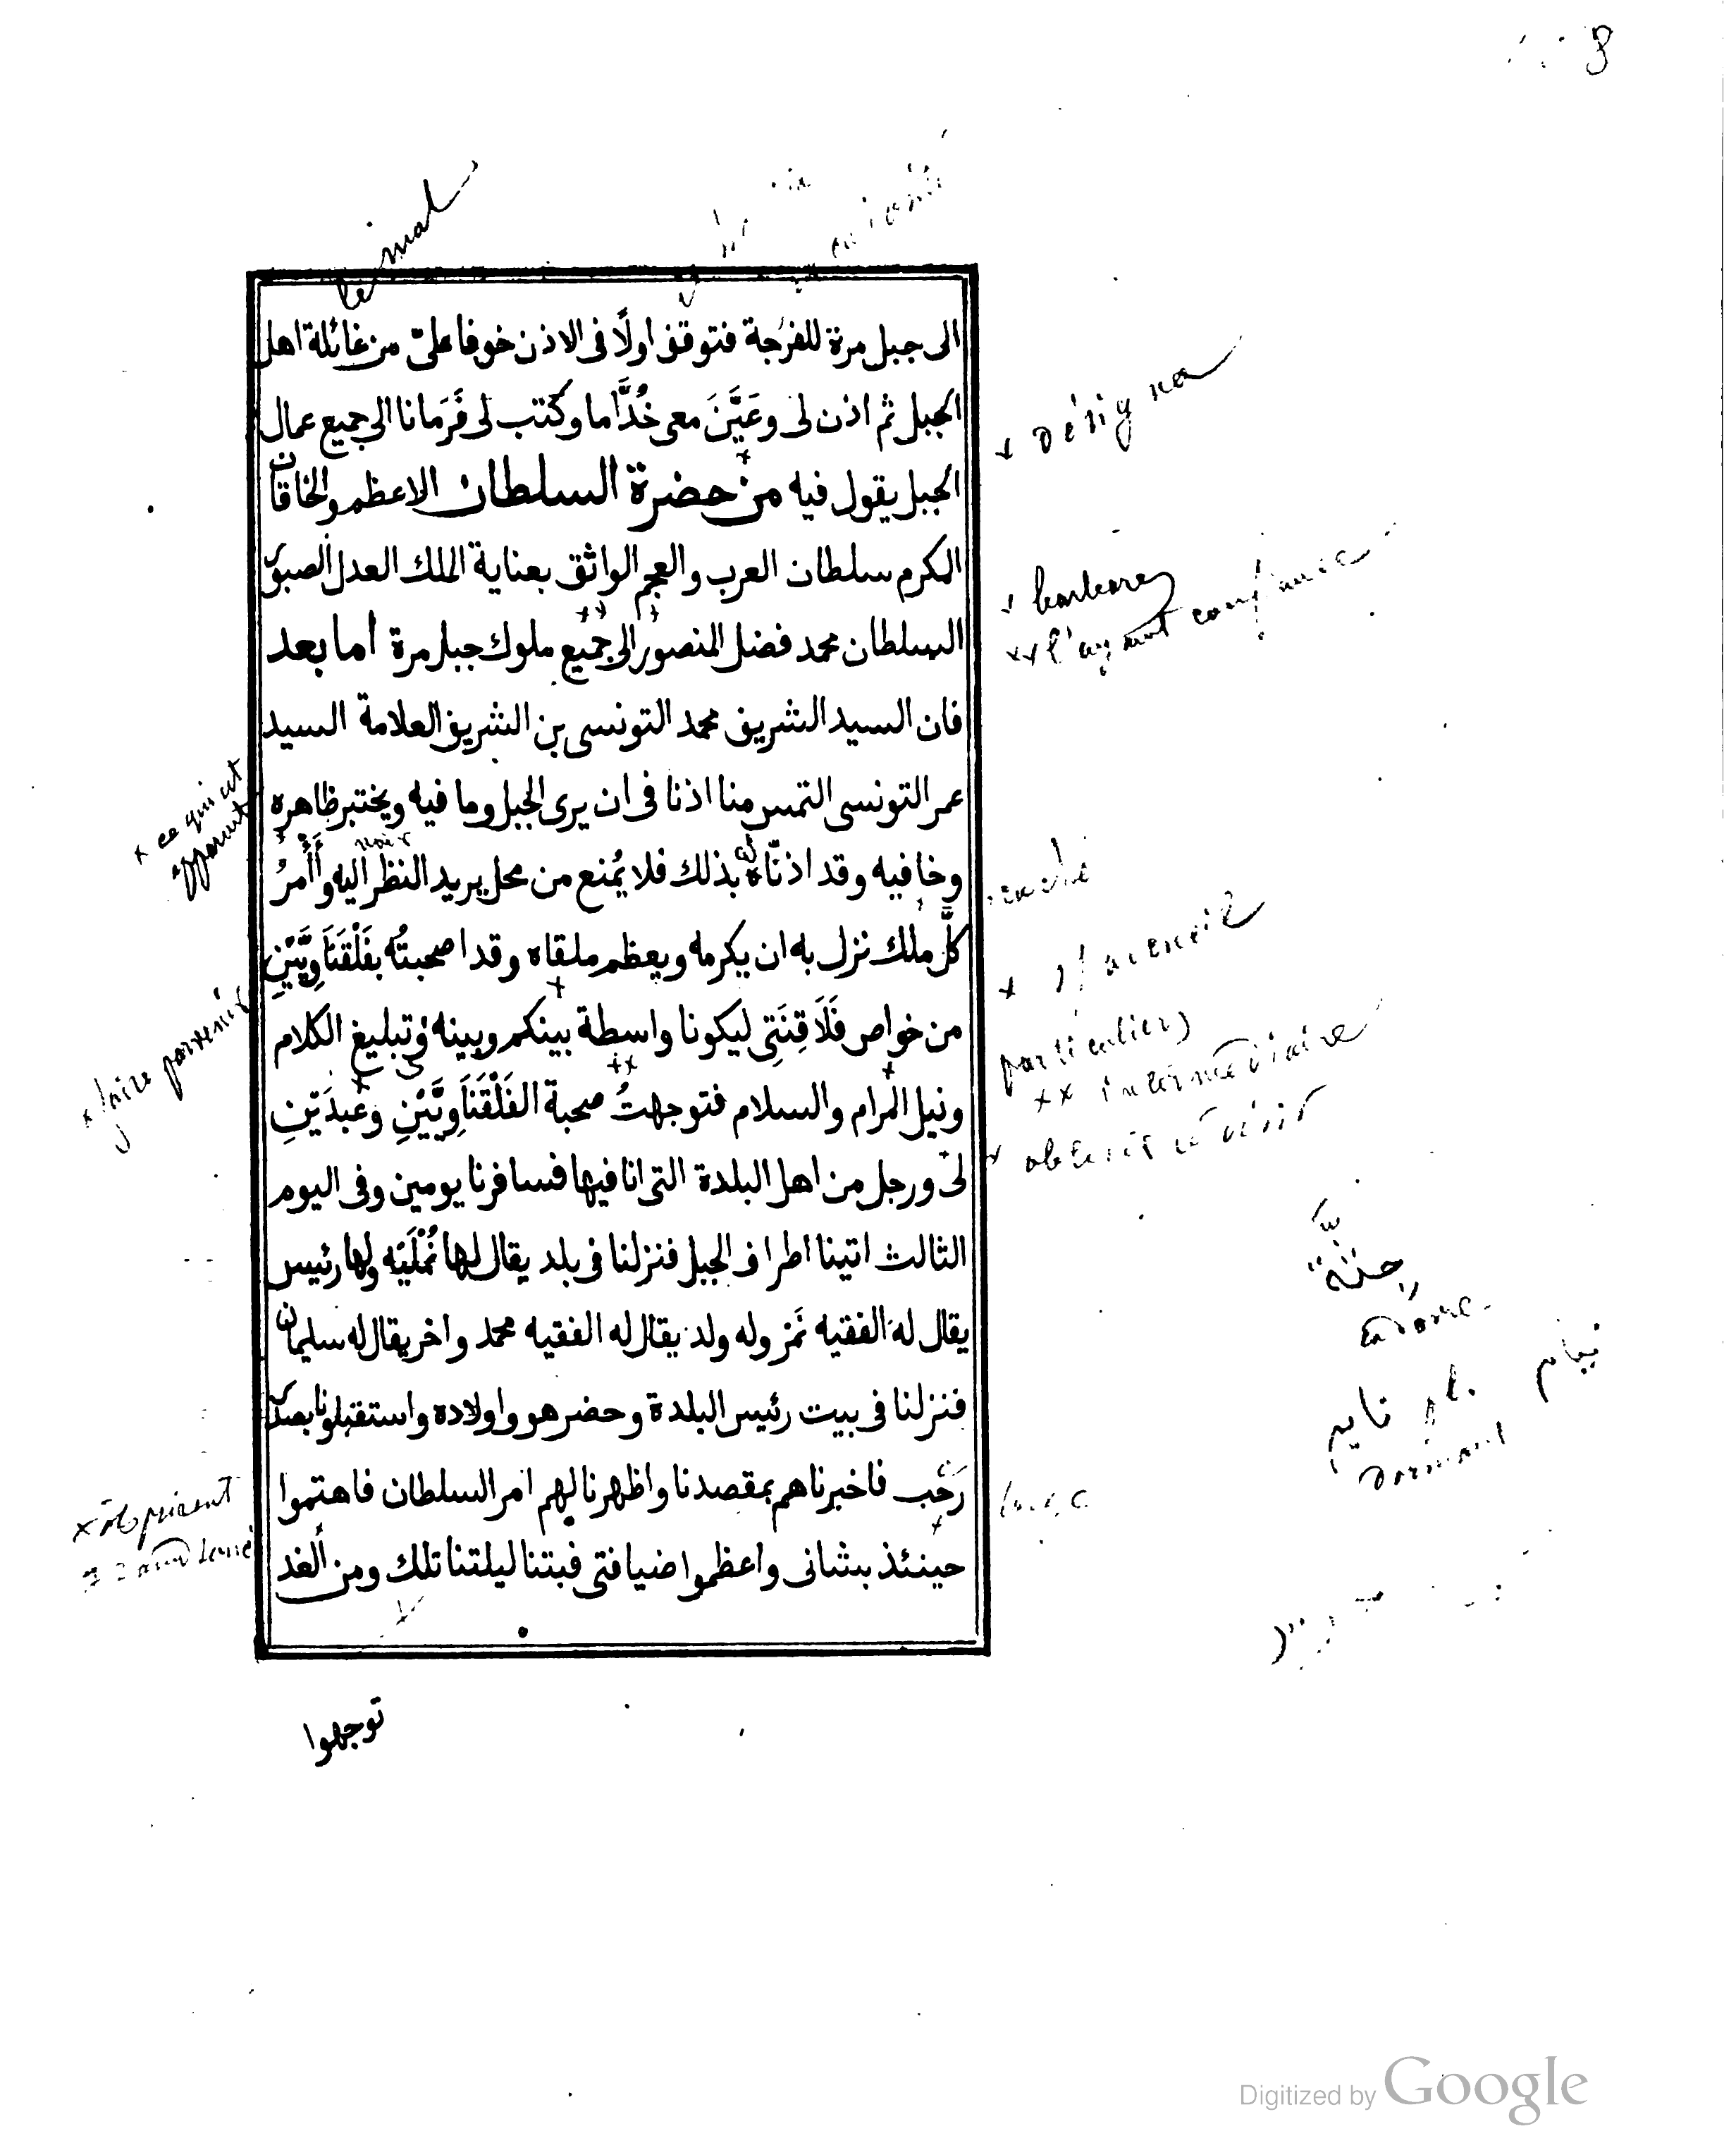 8
le mal
الى جبل مرة للفرجة فتوقف اولًا فى الاذن خوفا علىّ من غائلة اهل
الجبل ثم اذن لى وعَيَّنَ معى خُدَّاما وكتب لى فَرَمانا الى جميع عمال
الجبل يقول فيه من حضرة السلطان الاعظم والخاقان
المكرم سلطان العرب والعجم الواثق بعناية الملك العدل الصبور
السلطان محمد فضل المنصور الى جميع ملوك جبل مرة اما بعد
فان السيد الشريف محمد التونسى بن الشريف العلامة السيد
عمر التونسى التمس منا اذنا فى ان يرى الجبل وما فيه ويختبر ظاهره
وخافيه وقد اذنّاه بذلك فلا يُمنع من محل يريد النظر اليه وأَأْمرُ
كلَّ ملك نزل به ان يكرمه ويعظم ملقاه وقد اصحبتُه بفَلْقَنَاوِيَّيْنِ
من خواص فَلَاقِنَتِى ليكونا واسطة بينكم وبينه فى تبليغ الكلام
ونيل المرام والسلام فتوجهتُ صحبة الفَلْقَنَاوِيَّيْنِ وعبدَيْنِ
لى ورجل من اهل البلدة التى انا فيها فسافرنا يومين وفى اليوم
الثالث اتينا اطراف الجبل فنزلنا فى بلد يقال لها نُمْلَيْه ولها رئيس
يقال له الفقيه نَمَر وله ولد يقال له الفقيه محمد واخر يقال له سليمان
فنزلنا فى بيت رئيس البلدة وحضر هو واولاده واستقبلونا بصدر
رَحْب فاخبرناهم بمقصدنا واظهرنا لهم امر السلطان فاهتموا
حينئذ بشانى واعظموا ضيافتى فبتنا ليلتنا تلك ومن الغد
توجهوا
+ désigna
+ barbares
++ l'ayant confiance
+ ce qui est
apparent
voir
caché
+ faire parvenir
particuliers
++ intermédiaire
+ obtenir
نيام
نايم
dormant
large
Digitized by Google